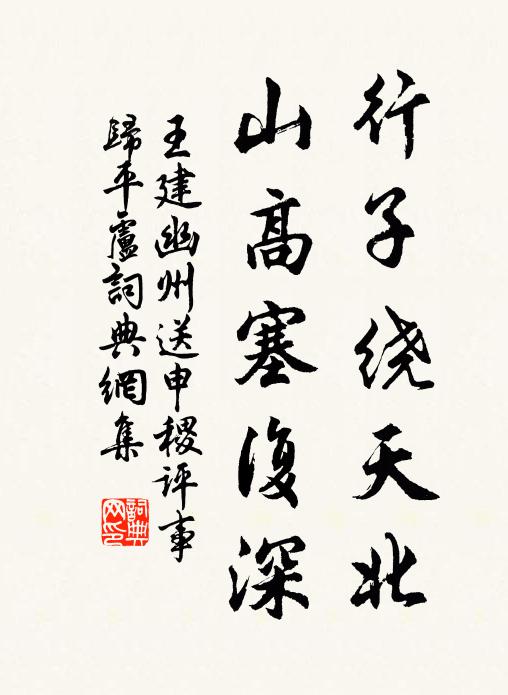 行子绕天北
山高塞復深
王建幽州送申稷评事
歸平盧詞典網集
詞典
网印